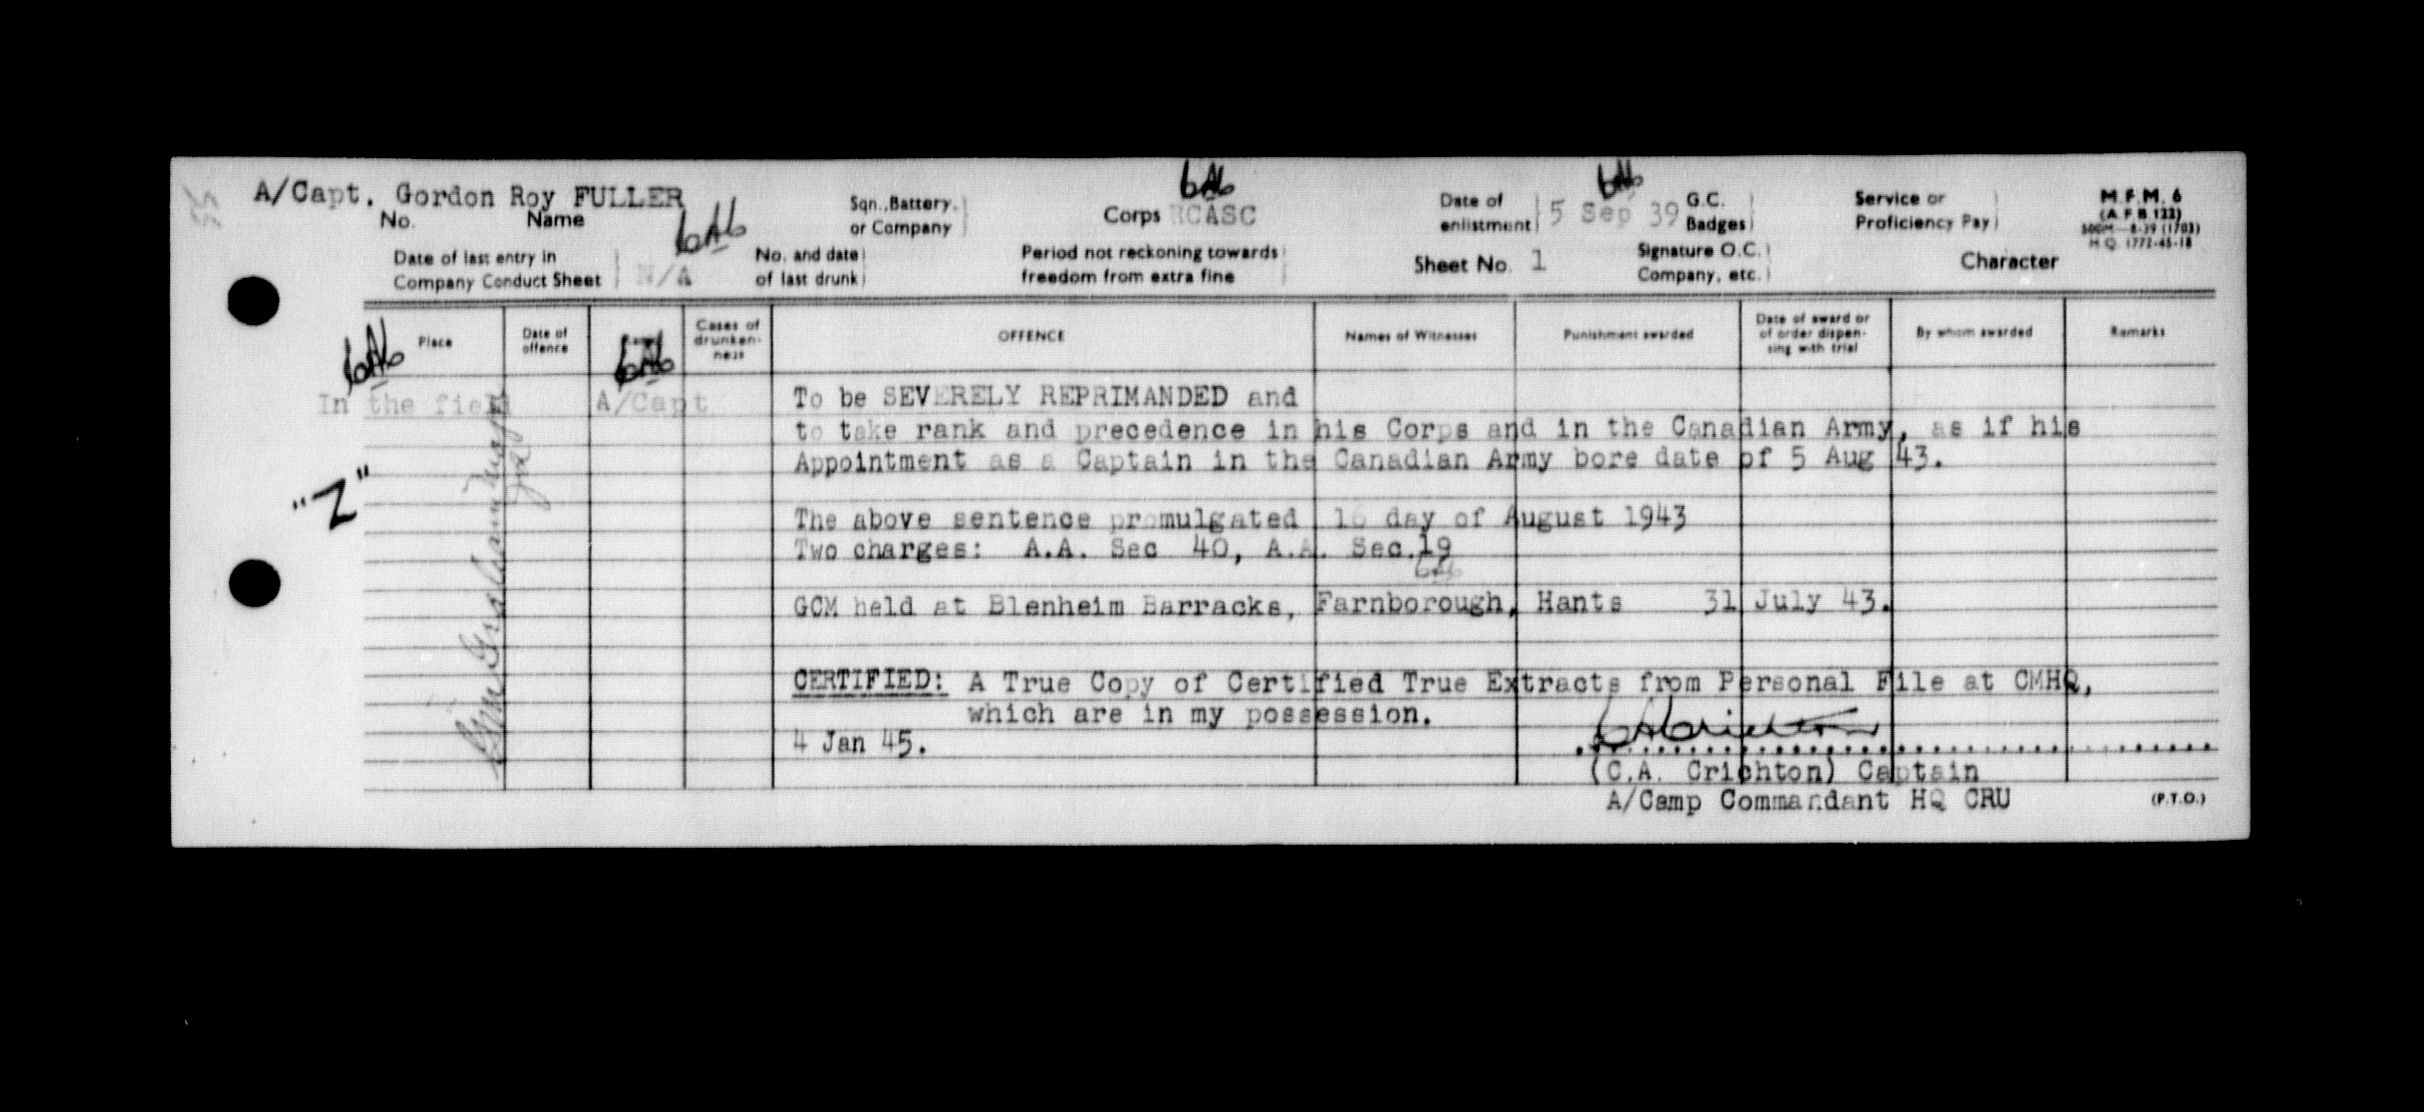 A/Capt. Gordon Roy FULLER
No. Name
Sqn., Battery. or Company
Corps RCASC
Date of enlistment 5 Sep 39
G.C. Badges
Service or Proficiency Pay
M.F.M. 6
(A.F.B. 122)
500M—8-39 (1703)
H.Q. 1772-45-18
Date of last entry in Company Conduct Sheet N/A
No. and date of last drunk
Period not reckoning towards freedom from extra fine
Sheet No. 1
Signature O.C. Company, etc.
Character
Place
Date of offence
Rank
Cases of drunken-ness
OFFENCE
Names of Witnesses
Punishment awarded
Date of award or of order dispen-sing with trial
By whom awarded
Remarks
In the field A/Capt To be SEVERELY REPRIMANDED and
to take rank and precedence in his Corps and in the Canadian Army, as if his
Appointment as a Captain in the Canadian Army bore date of 5 Aug 43.
"Z"
The above sentence promulgated 16 day of August 1943
Two charges: A.A. Sec 40, A.A. Sec.19
GCM held at Blenheim Barracks, Farnborough, Hants 31 July 43.
CERTIFIED: A True Copy of Certified True Extracts from Personal File at CMHQ,
which are in my possession.
4 Jan 45.
CACrichton
(C.A. Crichton) Captain
A/Camp Commandant HQ CRU
(P.T.O.)